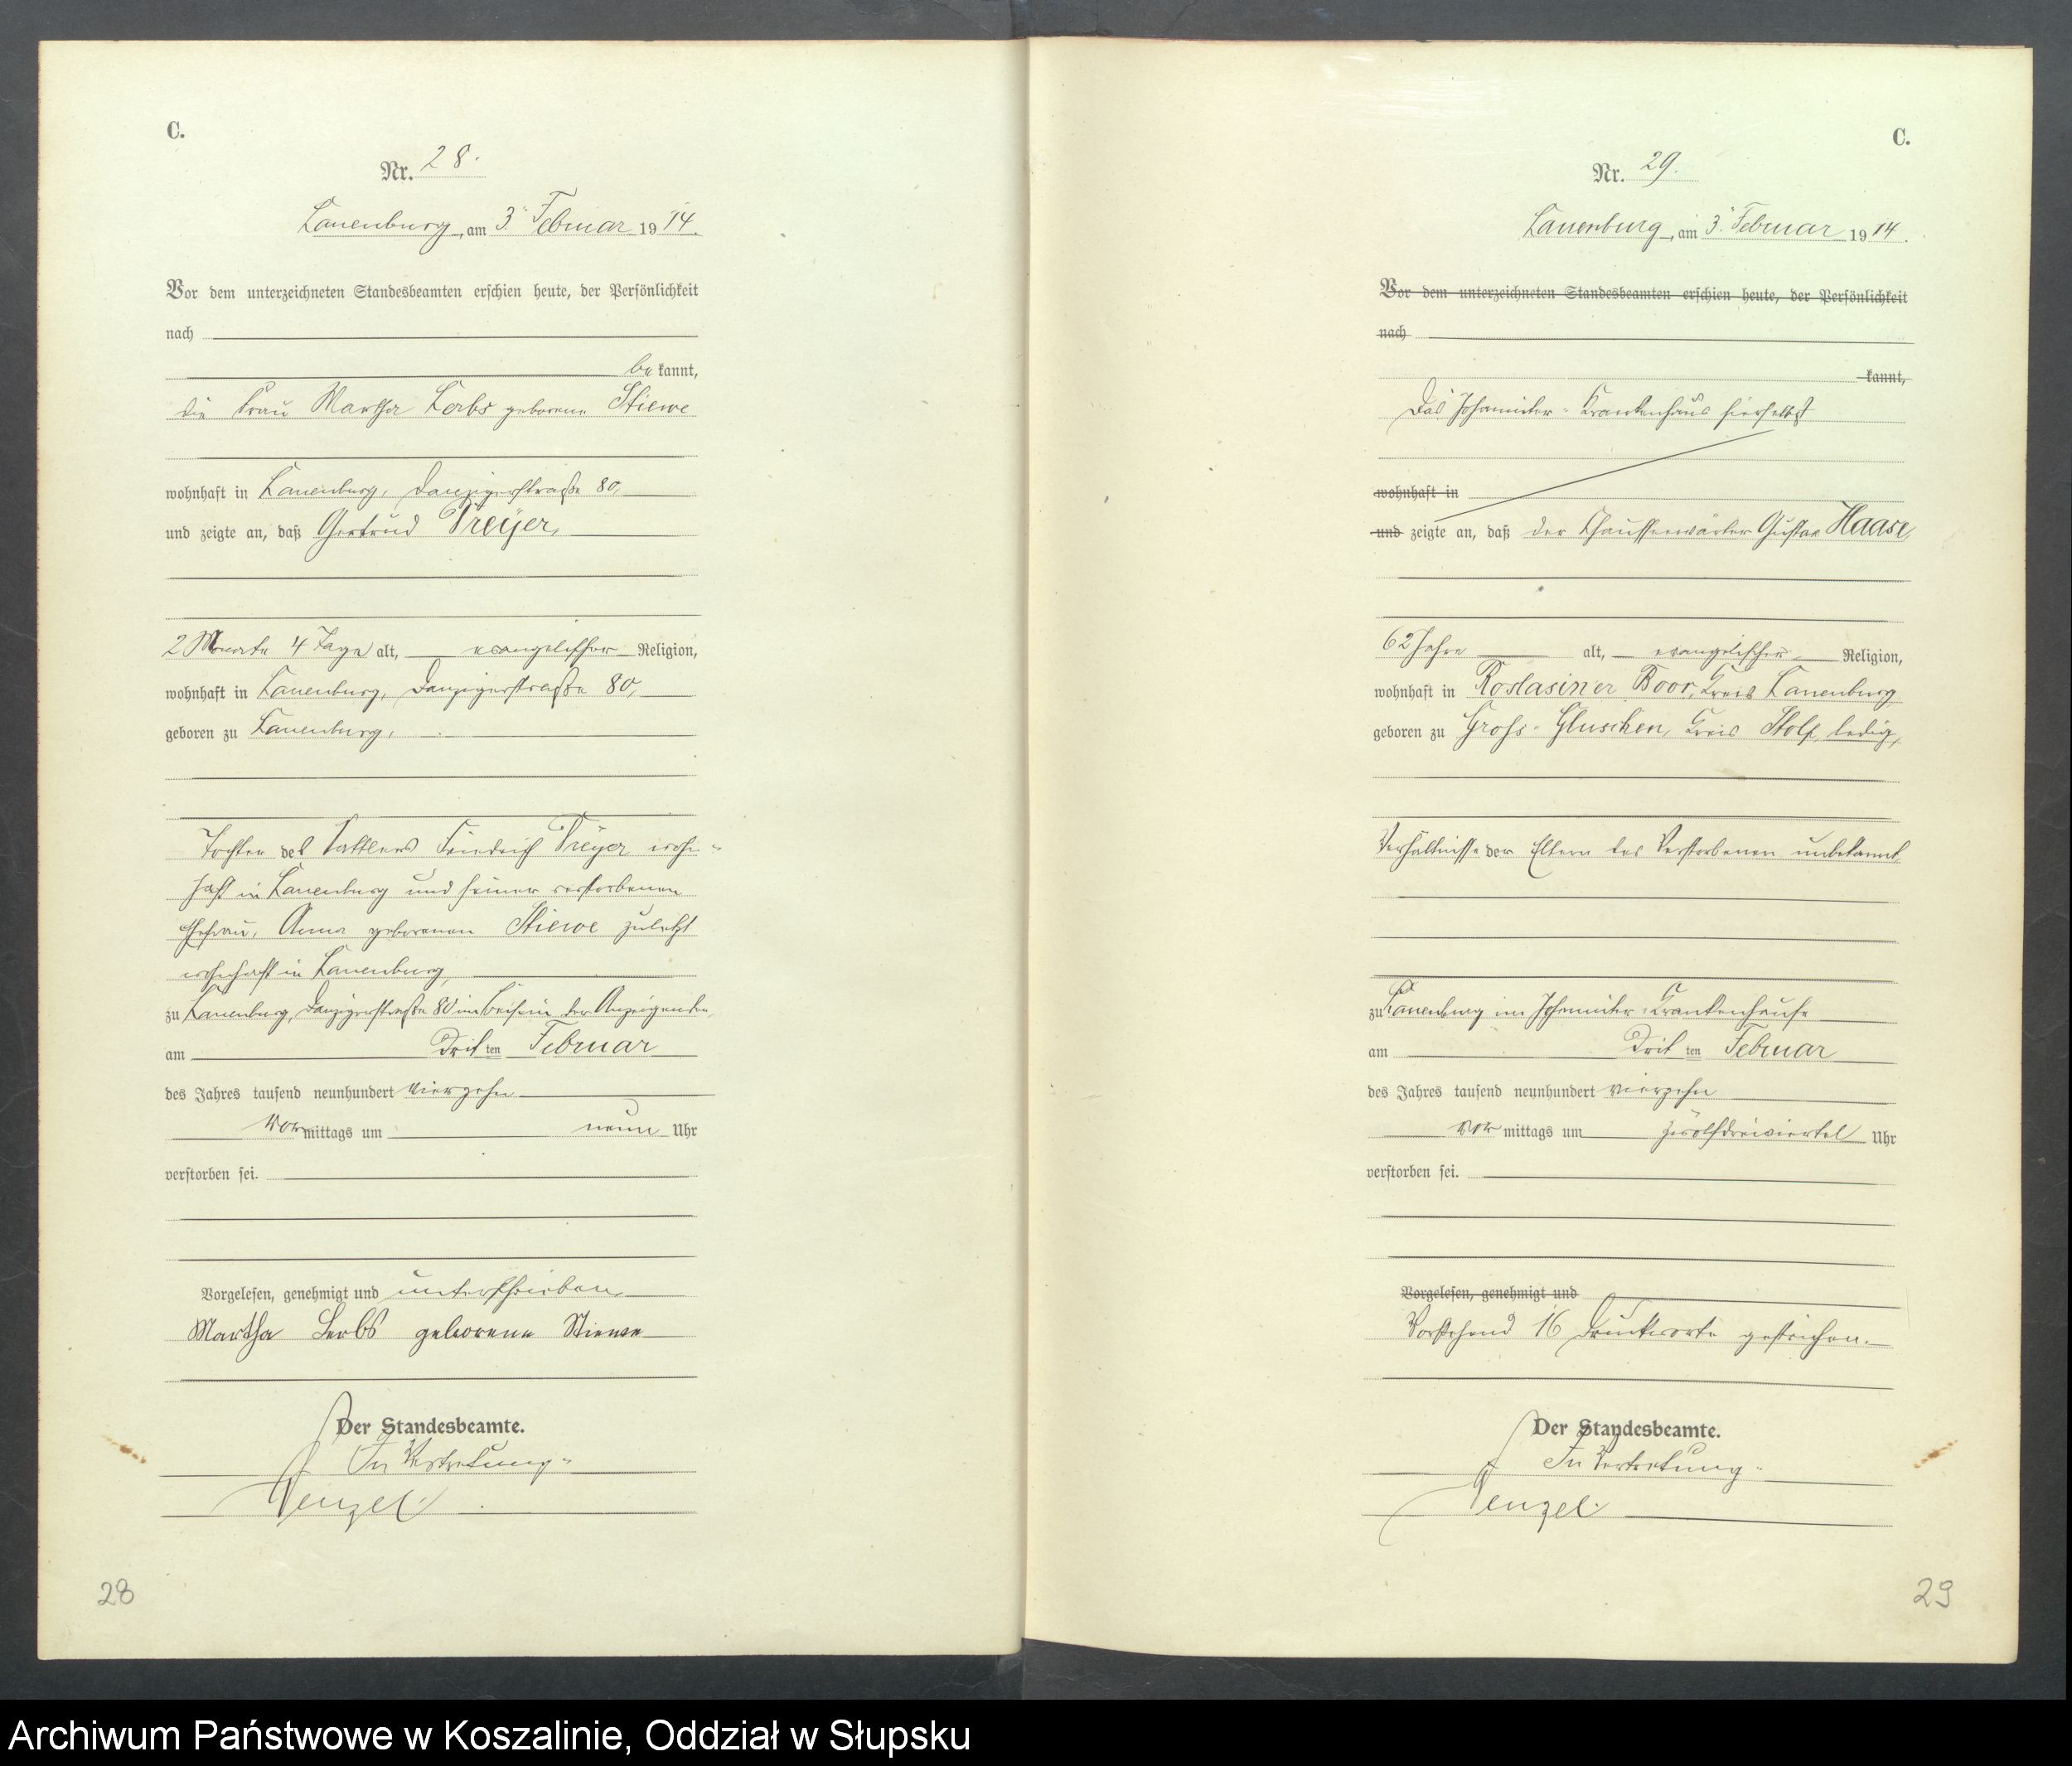 C.
Nr. 28.
Lauenburg, am 3. Februar 1914.
Vor dem unterzeichneten Standesbeamten erschien heute, der Persönlichkeit
nach
bekannt,
die Frau Martha Lerbs geborene Stiewe
wohnhaft in Lauenburg, Danzigerstraße 80,
und zeigte an, daß Gertrud Preÿer,
2 Monate 4 Tage alt, evangelischer Religion,
wohnhaft in Lauenburg, Danzigerstraße 80,
geboren zu Lauenburg,
Tochter des Sattlers Friedrich Preÿer wohn-
haft in Lauenburg und seiner verstorbenen
Ehefrau, Anna geborenen Stiewe zuletzt
wohnhaft in Lauenburg,
zu Lauenburg, Danzigerstraße 80 im Beisein der Anzeigenden,
am Dritten Februar
des Jahres tausend neunhundert vierzehn
Vormittags um neun Uhr
verstorben sei.
Vorgelesen, genehmigt und unterschrieben
Martha Lerbs geborene Stiewe
Der Standesbeamte.
In Vertretung.
Wenzel
28
C.
Nr. 29.
Lauenburg, am 3. Februar 1914.
Vor dem unterzeichneten Standesbeamten erschien heute, der Persönlichkeit
nach
kannt,
Das Johanniter-Krankenhaus hierselbst
wohnhaft in
und zeigte an, daß der Chausseewärter Gustav Haase,
62 Jahre alt, evangelischer Religion,
wohnhaft in Roslasiner Boor, Kreis Lauenburg
geboren zu Groß-Gluschen, Kreis Stolp, ledig,
Verhältnisse der Eltern des Verstorbenen unbekannt,
zu Lauenburg im Johanniter-Krankenhause
am Dritten Februar
des Jahres tausend neunhundert vierzehn
Vormittags um zwölfdreiviertel Uhr
verstorben sei.
Vorgelesen, genehmigt und
Vorstehend 16 Druckworte gestrichen.
Der Standesbeamte.
In Vertretung.
Wenzel
29
Archiwum Państwowe w Koszalinie, Oddział w Słupsku